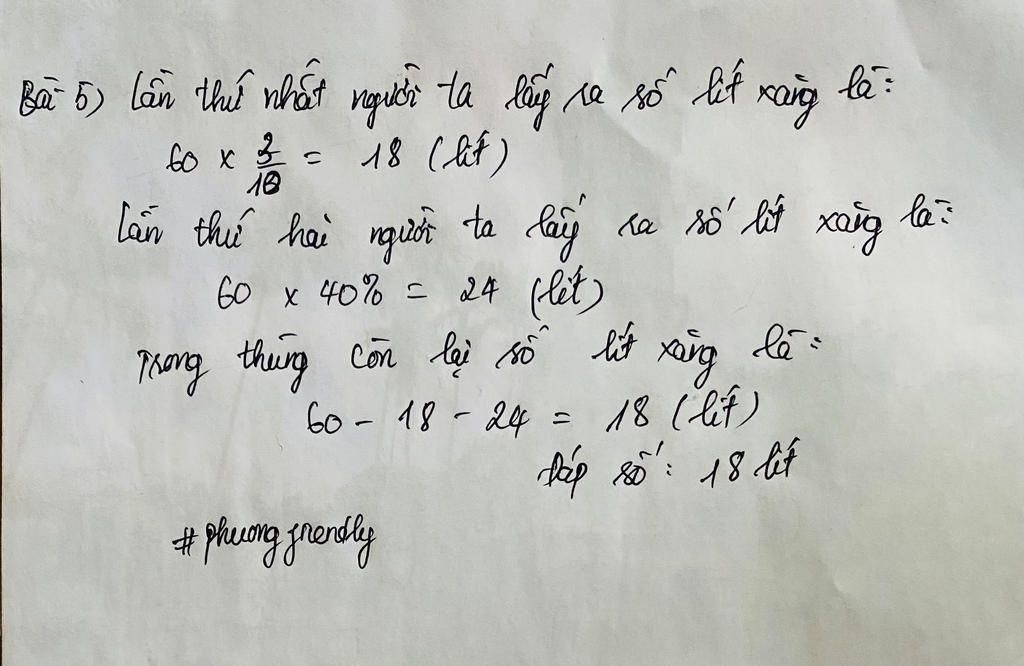 Bài 5) Lần thứ nhất người ta lấy ra số lít xăng là:
60 x 3/10 = 18 (lít)
Lần thứ hai người ta lấy ra số lít xăng là:
60 x 40% = 24 (lít)
Trong thùng còn lại số lít xăng là:
60 - 18 - 24 = 18 (lít)
Đáp số: 18 lít
#phuongfrendly